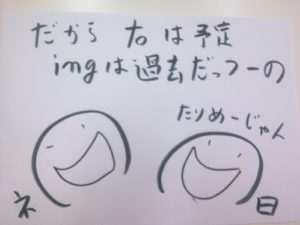 だから 右は予定
ingは過去だっつーの
たりめーじゃん
ネ
日